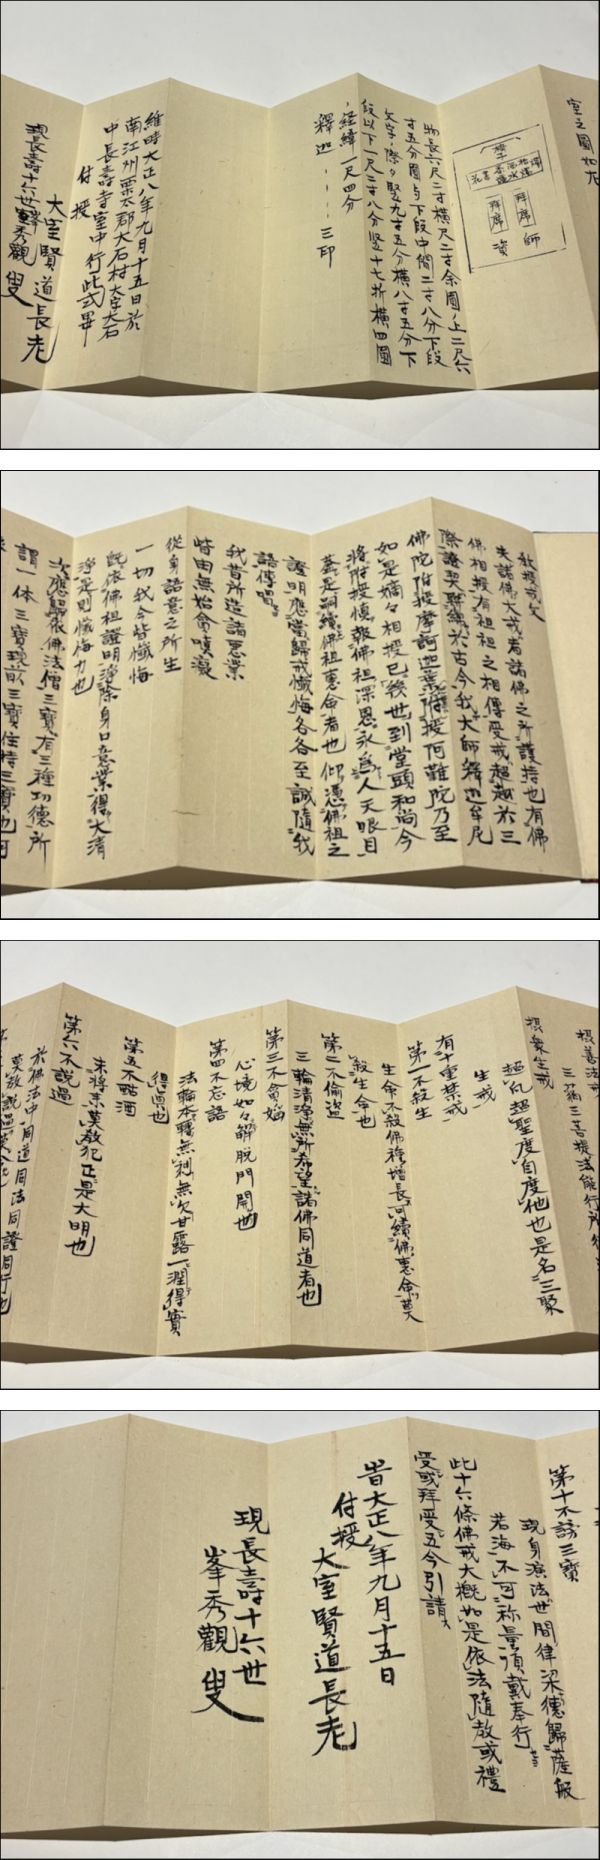 室之圖如左
師
資
拜席
拜席
椅子
物長六尺二寸横尺二寸余圖ノ上二尺六
寸五分圖与下段中間二寸八分下段
文字ノ際ゟ竪九寸五分横八寸五分下
段以下一尺二寸八分竪十七折横四圖
経緯一尺四分
釋迦 三印
維時大正八年九月十五日於
南江州栗太郡大石村大字大石
中長壽寺室中行此式畢
付授
大室賢道長老
現長壽十六世峯秀觀叟
教授戒文
夫諸佛大戒者諸佛之所護持也有佛
佛相授有祖祖之相傳受戒超越於三
際證契聯綿於古今我大師釋迦牟尼
佛陀附授摩訶迦葉附授阿難陀乃至
如是嫡々相授已幾世到堂頭和尚今
將附授慎報佛祖深恩永為人天眼目
蓋是嗣續佛祖惠命者也仰憑佛祖之
證明應當歸戒懺悔各各至誠隨我
語傳唱
我昔所造諸悪業
皆由無始貪嗔癡
従身語意之所生
一切我今皆懺悔
既依佛祖證明浄除身口意業得大清
浄是則懺悔力也
次應歸依佛法僧三寶有三種功德所
謂一体三寶現前三寶住持三寶也可
攝善法戒
三藐三菩提法能行所行
摂衆生戒
超凡超聖度自度他也是名三聚
生戒
有十重禁戒
第一不殺生
生命不殺佛種増長可續佛惠命莫
殺生命也
第二不偸盗
三輪清浄無所希望諸佛同道者也
第三不貪婬
心境如々解脱門開也
第四不忘語
法輪本轉無剰無欠甘露一潤得實
得眞也
第五不酤酒
未將来莫教犯正是大明也
第六不説過
於佛法中同道同法同證同行也
第十不謗三寶
現身演法世間律梁德歸薩般
若海不可称量頂戴奉行
此十六條佛戒大概如是依法隨教或禮
受或拜受五今引請
旹大正八年九月十五日
付授
大室賢道長老
現長壽十六世
峯秀觀叟